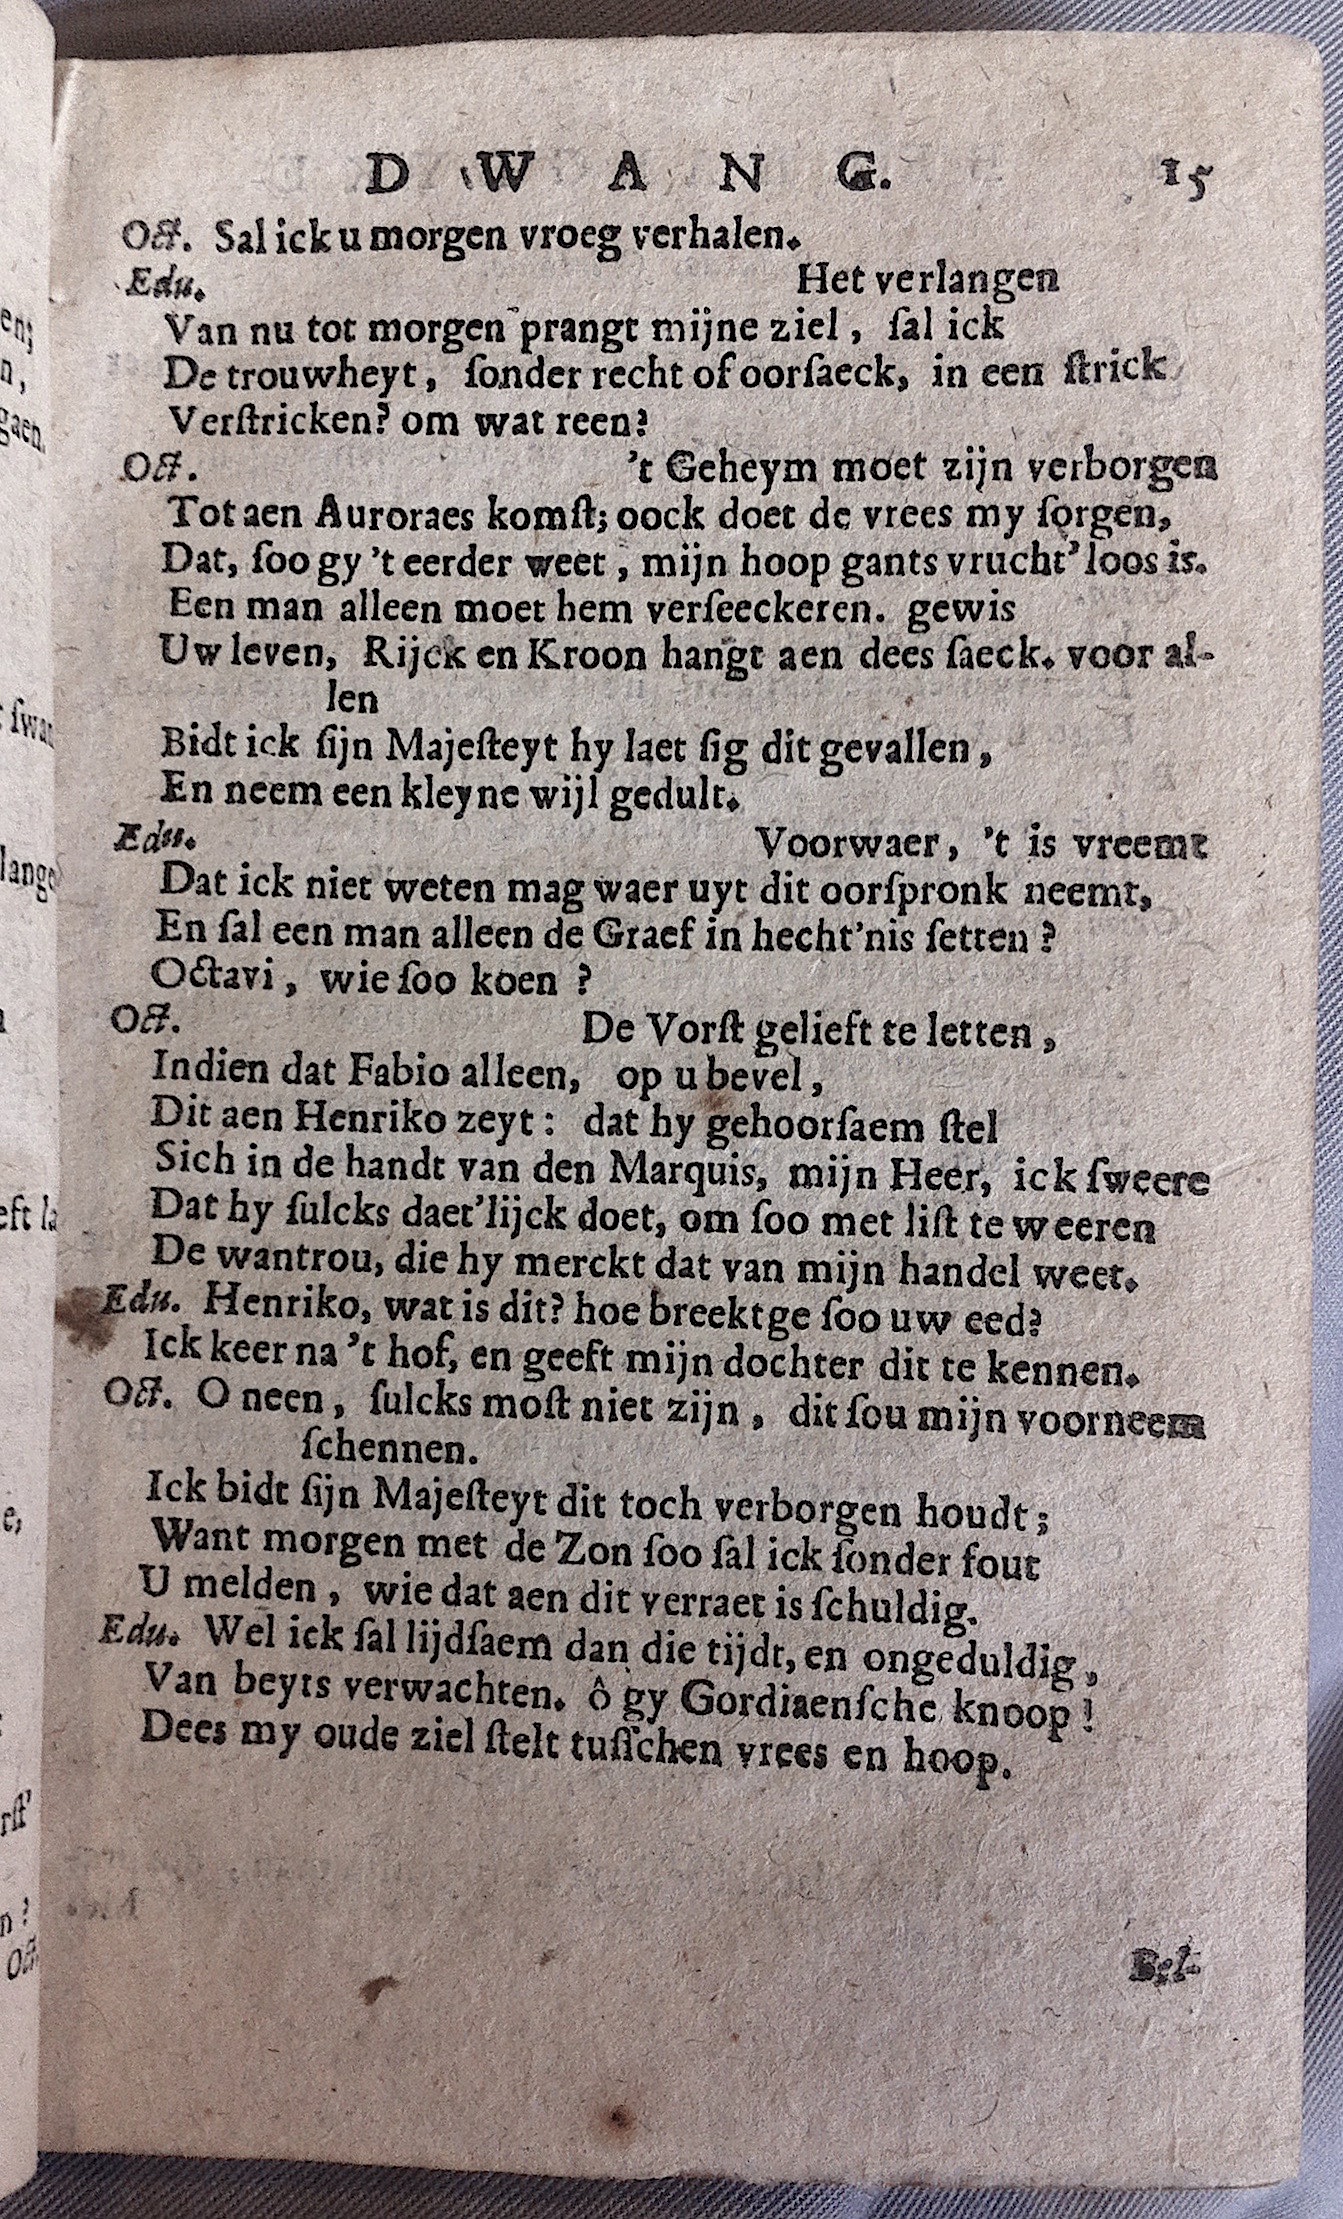 D W A N G. 15
Oct. Sal ick u morgen vroeg verhalen.
Edu. Het verlangen
Van nu tot morgen prangt mijne ziel, ſal ick
De trouwheyt, ſonder recht of oorſaeck, in een ſtrick
Verſtricken? om wat reen?
Oct. 't Geheym moet zijn verborgen
Tot aen Auroraes komſt; oock doet de vrees my ſorgen,
Dat, ſoo gy 't eerder weet, mijn hoop gants vrucht'loos is.
Een man alleen moet hem verſeeckeren. gewis
Uw leven, Rijck en Kroon hangt aen dees ſaeck. voor al-
len
Bidt ick ſijn Majeſteyt hy laet ſig dit gevallen,
En neem een kleyne wijl gedult.
Edu. Voorwaer, 't is vreemt
Dat ick niet weten mag waer uyt dit oorſpronk neemt,
En ſal een man alleen de Graef in hecht'nis ſetten?
Octavi, wie ſoo koen?
Oct. De Vorſt gelieft te letten,
Indien dat Fabio alleen, op u bevel,
Dit aen Henriko zeyt: dat hy gehoorſaem ſtel
Sich in de handt van den Marquis, mijn Heer, ick ſweere
Dat hy ſulcks daet'lijck doet, om ſoo met liſt te weeren
De wantrou, die hy merckt dat van mijn handel weet.
Edu. Henriko, wat is dit? hoe breekt ge ſoo uw eed?
Ick keer na 't hof, en geeft mijn dochter dit te kennen.
Oct. O neen, ſulcks moſt niet zijn, dit ſou mijn voorneem
ſchennen.
Ick bidt ſijn Majeſteyt dit toch verborgen houdt;
Want morgen met de Zon ſoo ſal ick ſonder fout
U melden, wie dat aen dit verraet is ſchuldig.
Edu. Wel ick ſal lijdſaem dan die tijdt, en ongeduldig,
Van beyts verwachten. ô gy Gordiaenſche knoop!
Dees my oude ziel ſtelt tuſſchen vrees en hoop.
Bel-